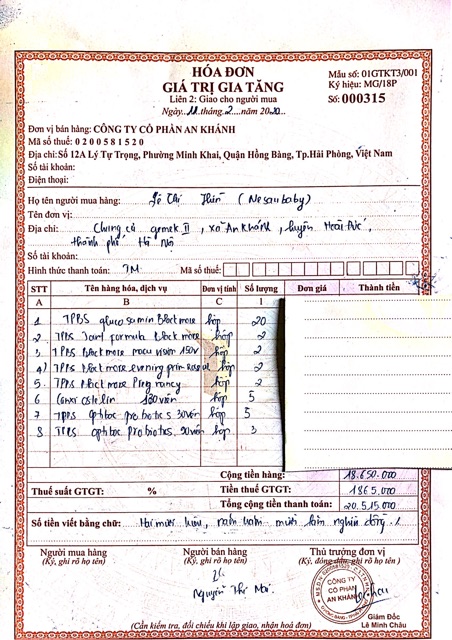 HÓA ĐƠN
GIÁ TRỊ GIA TĂNG
Liên 2: Giao cho người mua
Ngày 11 tháng 2 năm 2020
Mẫu số: 01GTKT3/001
Ký hiệu: MG/18P
Số: 000315
Đơn vị bán hàng: CÔNG TY CỔ PHẦN AN KHÁNH
Mã số thuế: 0 2 0 0 5 8 1 5 2 0
Địa chỉ: Số 12A Lý Tự Trọng, Phường Minh Khai, Quận Hồng Bàng, Tp.Hải Phòng, Việt Nam
Số tài khoản:
Điện thoại:
Họ tên người mua hàng: Lê Thị (Nesaubaby)
Tên đơn vị:
Địa chỉ: Chung cư gemek II, xã An Khánh, huyện Hoài Đức,
thành phố Hà Nội
Số tài khoản:
Hình thức thanh toán: TM Mã số thuế:
STT Tên hàng hóa, dịch vụ Đơn vị tính Số lượng Đơn giá Thành tiền
A B C 1
1 TPBS glucosamin Blackmore hộp 20
2 TPBS Joint formula Blackmore hộp 2
3 TPBS Blackmore macu vision 150V hộp 2
4) TPBS blackmore evening primrose oil hộp 2
5 TPBS Blackmore Pregnancy hộp 2
6 ostelin 130 viên hộp 5
7 TPBS optibac probiotics 30viên hộp 5
8 TPBS optibac Probiotics 90viên hộp 3
Cộng tiền hàng: 18.650.000
Thuế suất GTGT: % Tiền thuế GTGT: 1865.000
Tổng cộng tiền thanh toán: 20.515.000
Số tiền viết bằng chữ: Hai mươi triệu, năm trăm mười lăm nghìn đồng ./.
Người mua hàng Người bán hàng Thủ trưởng đơn vị
(Ký, ghi rõ họ tên) (Ký, ghi rõ họ tên) (Ký, đóng dấu, ghi rõ họ tên)
CÔNG TY
CỔ PHẦN
AN KHÁNH
Nguyễn Thị Mai
Giám Đốc
Lê Minh Châu
(Cần kiểm tra, đối chiếu khi lập, giao nhận hoá đơn)